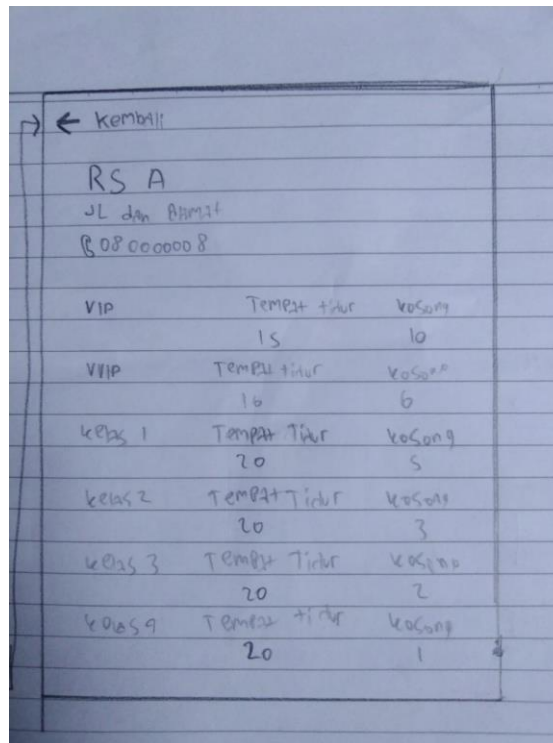 ← Kembali
RS A
JL dan Alamat
08000008
VIP Tempat tidur kosong
15 10
VVIP Tempat tidur kosong
10 6
kelas 1 Tempat Tidur kosong
20 5
kelas 2 Tempat Tidur kosong
20 3
kelas 3 Tempat Tidur kosong
20 2
kelas 4 Tempat tidur kosong
20 1